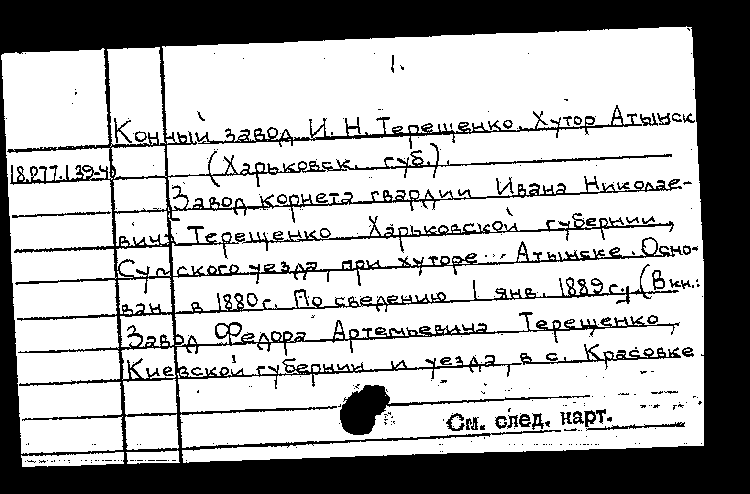 1.
Конный завод И. Н. Терещенко. Хутор Атынск
18.277.1.39-40 (Харьковск. губ.).
Завод корнета гвардии Ивана Николае-
вича Терещенко Харьковской губернии,
Сумского уезда, при хуторе Атынске. Осно-
ван в 1880 г. По сведению 1 янв. 1889 г., (В кн.:
Завод Федора Артемьевича Терещенко,
Киевской губернии и уезда, в с. Красовке
См. след. карт.